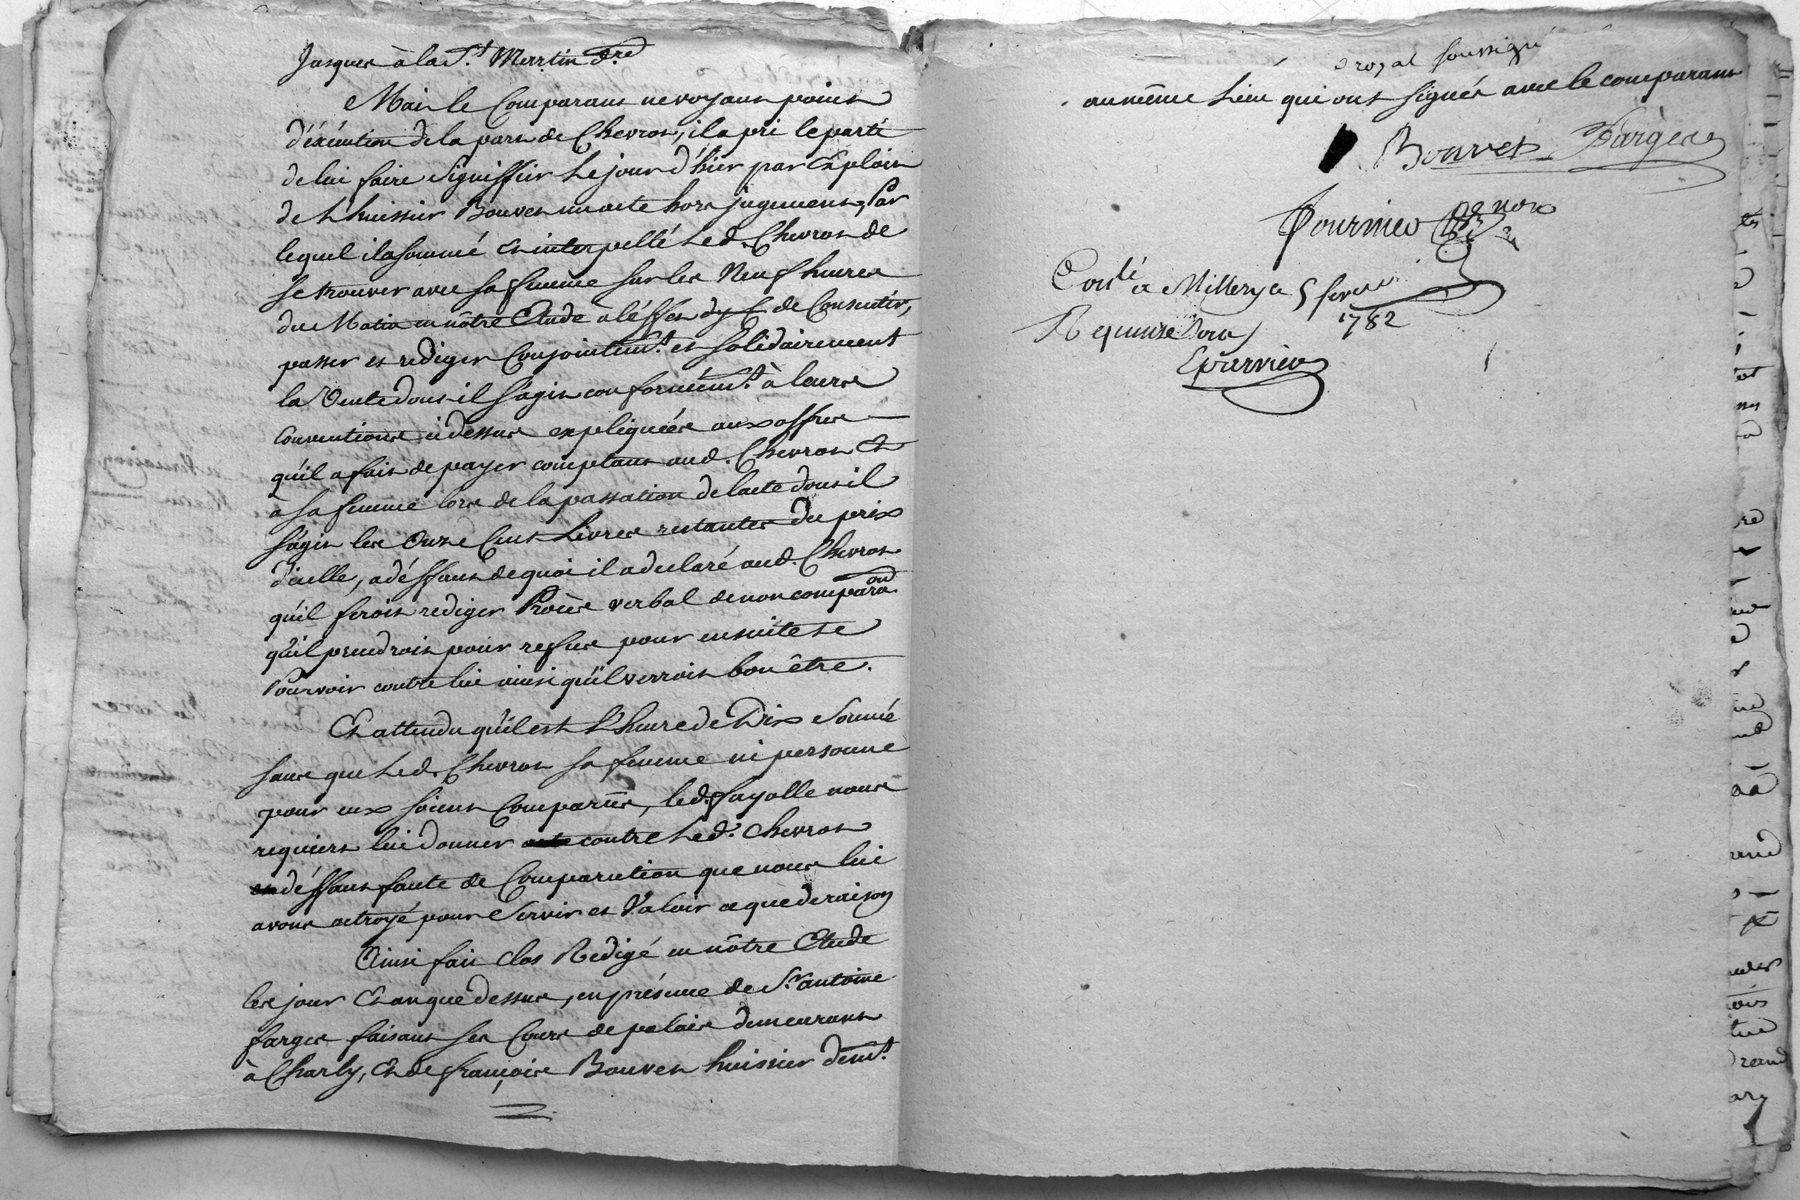 Jusques à la St. Martin dre
Mais le Comparant ne voyant point
d'éxécution de la part de Chevron, il a pri le parti
de lui faire Signiffier Le jour d'hier par Exploit
de L'huissier Bouvet un acte hors jugement, Par
lequel il a sommé et interpellé Led. Chevron de
se trouver avec sa femme sur les Neuf heures
du Matin en nôtre Etude a léffet dy et de Consentir,
passer et rediger Conjointemt. et solidairement
la Vente dont il s'agit conformémt. à leurs
conventions cidessus expliquées aux offres
qu'il a fait de payer comptant aud. Chevron Et
a sa femme lors de la passation de lacte dont il
s'agit les Onze Cent Livres restantes du prix
d'icelle, a déffaut de quoi il a declaré aud. Chevron
qu'il feroit rediger Procès verbal de non comparaon
qu'il prendroit pour refus pour ensuite se
Pourvoir contre lui ainsi qu'il verroit bon être.
Et attendu qu'il est L'heure de Dix Sonné
sans que Led. Chevron sa femme ni personne
pour eux soient Comparus, led. fayolle nous
requiert lui donner acte contre Led. Chevron
en déffaut faute de Comparution que nous lui
avons octroyé pour Servir et Valoir ce que de raison
Ainsi fait Clos Redigé en nôtre Etude
les jour Et an que dessus, en présence de Sr. antoine
farges faisant ses Cours de palais demeurant
à Charly, Et de françois Bouvet huissier demt.
royal soussigné
au même Lieu qui ont signés avec le comparant
Bouvet Farges
Fournier
Conlé a Millery le 5 fevrier
1782
R quinze sous
Epurrier